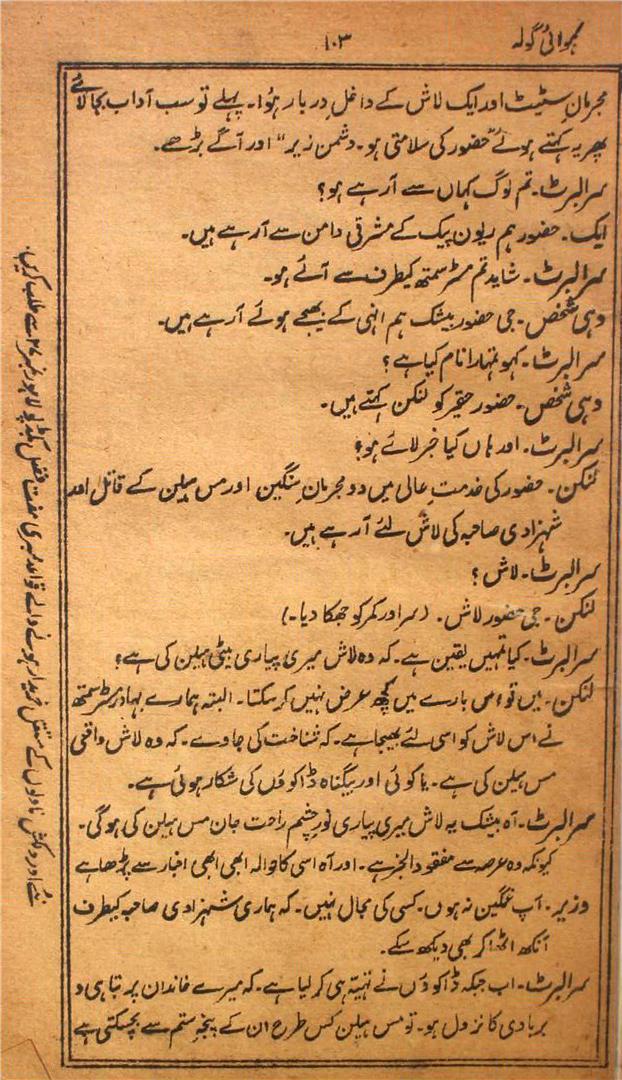 ہوائی گولہ
۱۰۳
مجرمانِ سٹیٹ اور ایک لاش کے داخلِ دربار ہؤا۔ پہلے تو سب آداب بجا لائے
پھر یہ کہتے ہوئے "حضور کی سلامتی ہو۔ دشمن زیر" اور آگے بڑھے۔
سرالبرٹ۔ تم لوگ کہاں سے آ رہے ہو؟
ایک۔ حضور ہم ریون پیک کے مشرقی دامن سے آ رہے ہیں۔
سرالبرٹ۔ شاید تم مسٹر سمتھ کیطرف سے آئے ہو۔
وہی شخص۔ جی حضور بیشک ہم انہی کے بھیجے ہوئے آ رہے ہیں۔
سرالبرٹ۔ کہو تمہارا نام کیا ہے؟
وہی شخص۔ حضور حقیر کو لنکن کہتے ہیں۔
سرالبرٹ۔ اور ہاں کیا خبر لائے ہو؟
لنکن۔ حضور کی خدمتِ عالی میں دو مجرمانِ سنگین اور مس ہیلن کے قاتل اور
شہزادی صاحبہ کی لاش لئے آ رہے ہیں۔
سرالبرٹ۔ لاش؟
لنکن۔ جی حضور لاش۔ (سر اور کمر کو جھکا دیا۔)
سرالبرٹ۔ کیا تمہیں یقین ہے۔ کہ وہ لاش میری پیاری بیٹی ہیلن کی ہے؟
لنکن۔ میں تو اس بارے میں کچھ عرض نہیں کر سکتا۔ البتہ ہمارے بہادر مسٹر سمتھ
نے اس لاش کو اسی لئے بھیجا ہے۔ کہ شناخت کی جاوے۔ کہ وہ لاش واقعی
مس ہیلن کی ہے۔ یا کوئی اور بیگناہ ڈاکوؤں کی شکار ہوئی ہے۔
سرالبرٹ۔ آہ بیشک یہ لاش میری پیاری نورِ چشم راحت جان مس ہیلن کی ہوگی۔
کیونکہ وہ عرصہ سے مفقود الخبر ہے۔ اور آہ اسی کا حوالہ ابھی ابھی اخبار سے پڑھا ہے
وزیر۔ آپ غمگین نہ ہوں۔ کسی کی مجال نہیں۔ کہ ہماری شہزادی صاحبہ کیطرف
آنکھ اٹھا کر بھی دیکھ سکے۔
سرالبرٹ۔ اب جبکہ ڈاکوؤں نے تہیّہ ہی کر لیا ہے۔ کہ میرے خاندان پر تباہی و
بربادی کا نزول ہو۔ تو مس ہیلن کس طرح ان کے پنجۂ ستم سے بچ سکتی ہے
نئے اور دلکش ناولوں کے مستقل خریدار ہونے والے قواعد ممبری مفت فضل بکڈپو لاہور نمبر ۲۶ سے طلب کریں۔